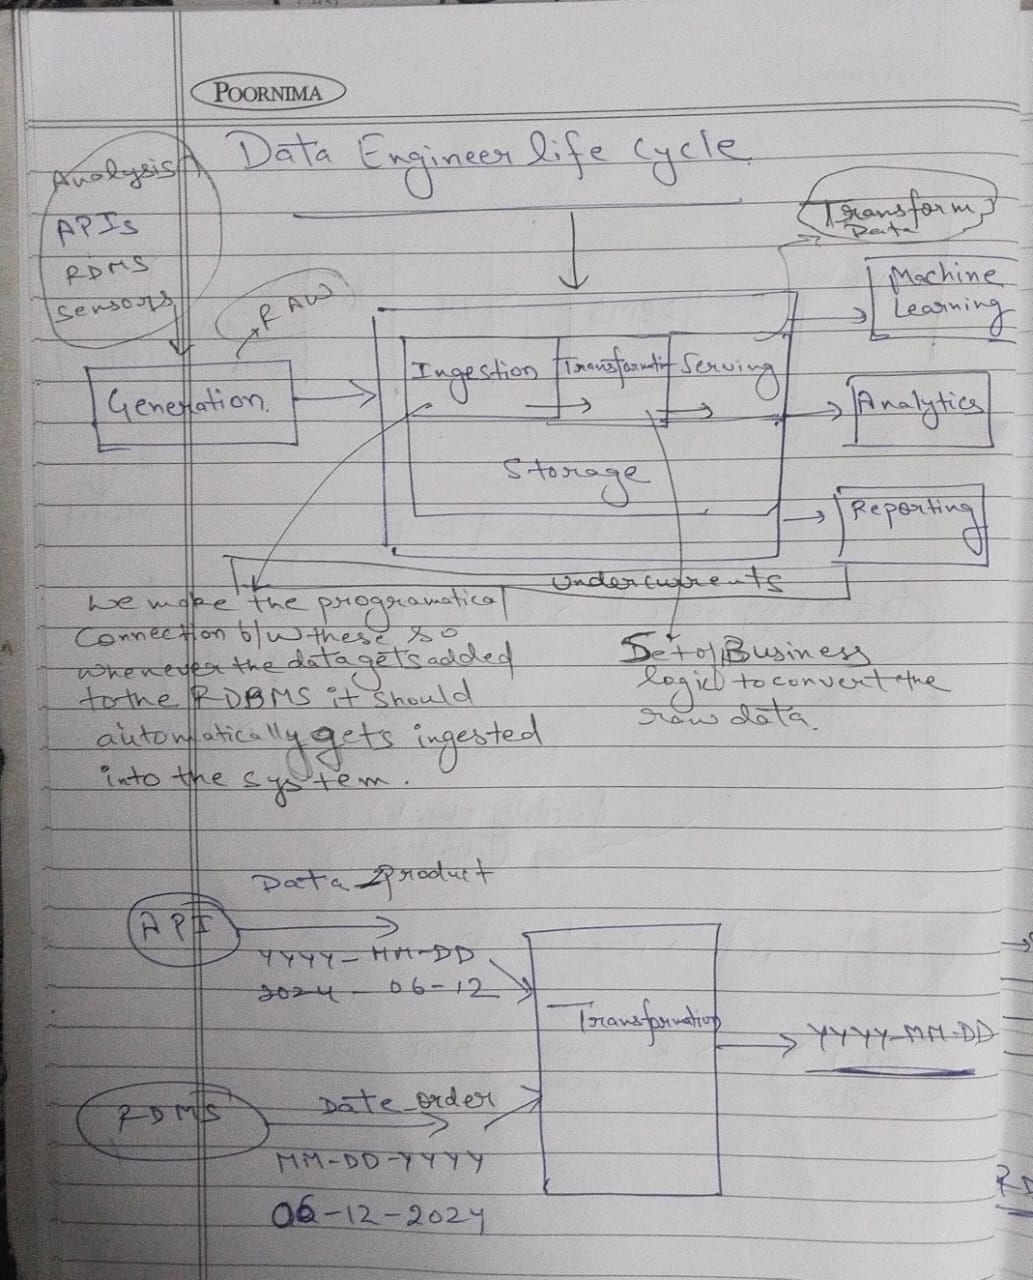 POORNIMA
Data Engineer life Cycle
Analysis
APIs
RDMS
Sensors
RAW
Transform
Data
Generation
Ingestion
Transformation
Serving
Storage
Machine
Learning
Analytics
Reporting
undercurrents
we make the programatical
Connection b/w these so
whenever the data gets added
to the RDBMS it should
automatically gets ingested
into the system.
Set of Business
logic to convert the
raw data.
API
Data product
YYYY-MM-DD
2024-06-12
Transformation
YYYY-MM-DD
RDMS
Date_order
MM-DD-YYYY
06-12-2024